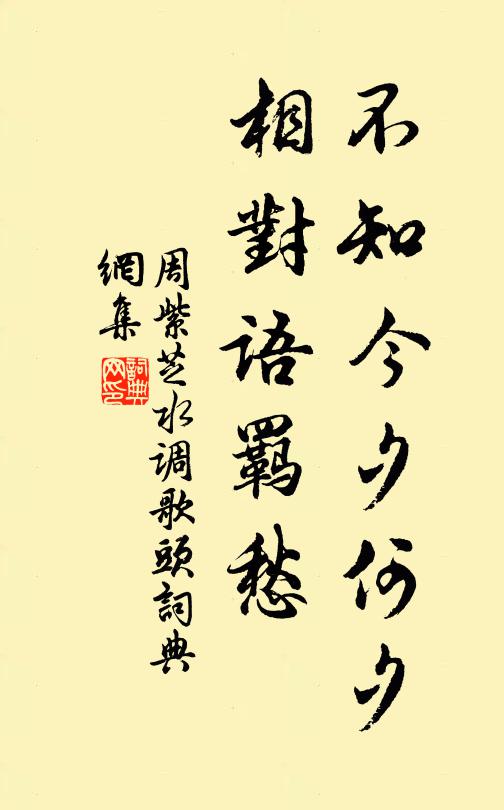 不知今夕何夕
相對語羈愁
周紫芝水调歌頭詞典
網集
詞典網印